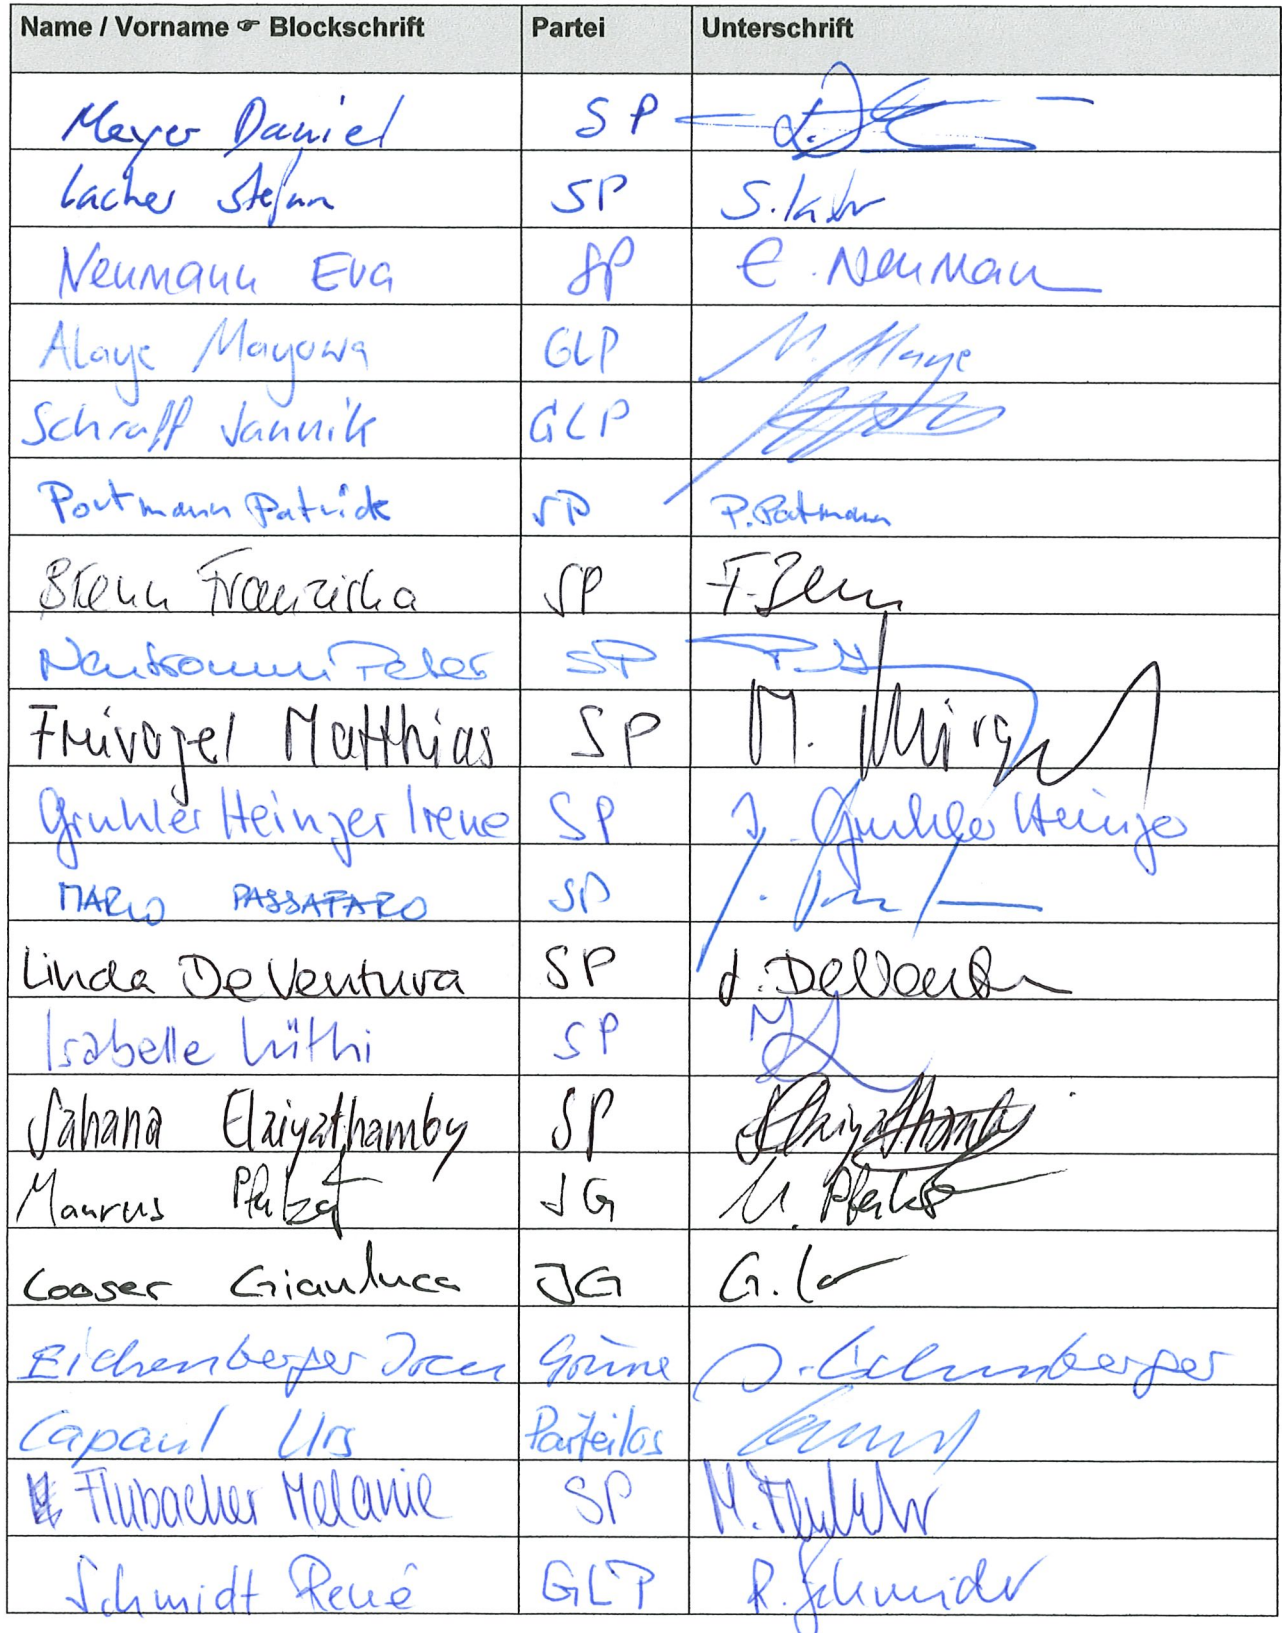 Name / Vorname ☞ Blockschrift Partei Unterschrift
Meyer Daniel SP
Lacher Stefan SP S. Lacher
Neumann Eva SP E. Neumann
Alaye Mayowa GLP M. Alaye
Schraff Jannik GLP
Portmann Patrick SP P. Portmann
Brenn Franziska SP F. Brenn
Neukomm Peter SP P. N
Freivogel Matthias SP M.
Gruhler Heinzer Irene SP I. Gruhler Heinzer
MARIO PASSAFARO SP
Linda De Ventura SP L. De Ventura
Isabelle Lüthi SP
Sahana Elaiyathamby SP S. Elaiyathamby
Maurus Pfalzgraf JG M. Pfalzgraf
Looser Gianluca JG G. Lo
Eichenberger Iren Grüne I. Eichenberger
Capaul Urs Parteilos
Flubacher Melanie SP M. Flubacher
Schmidt René GLP R. Schmidt